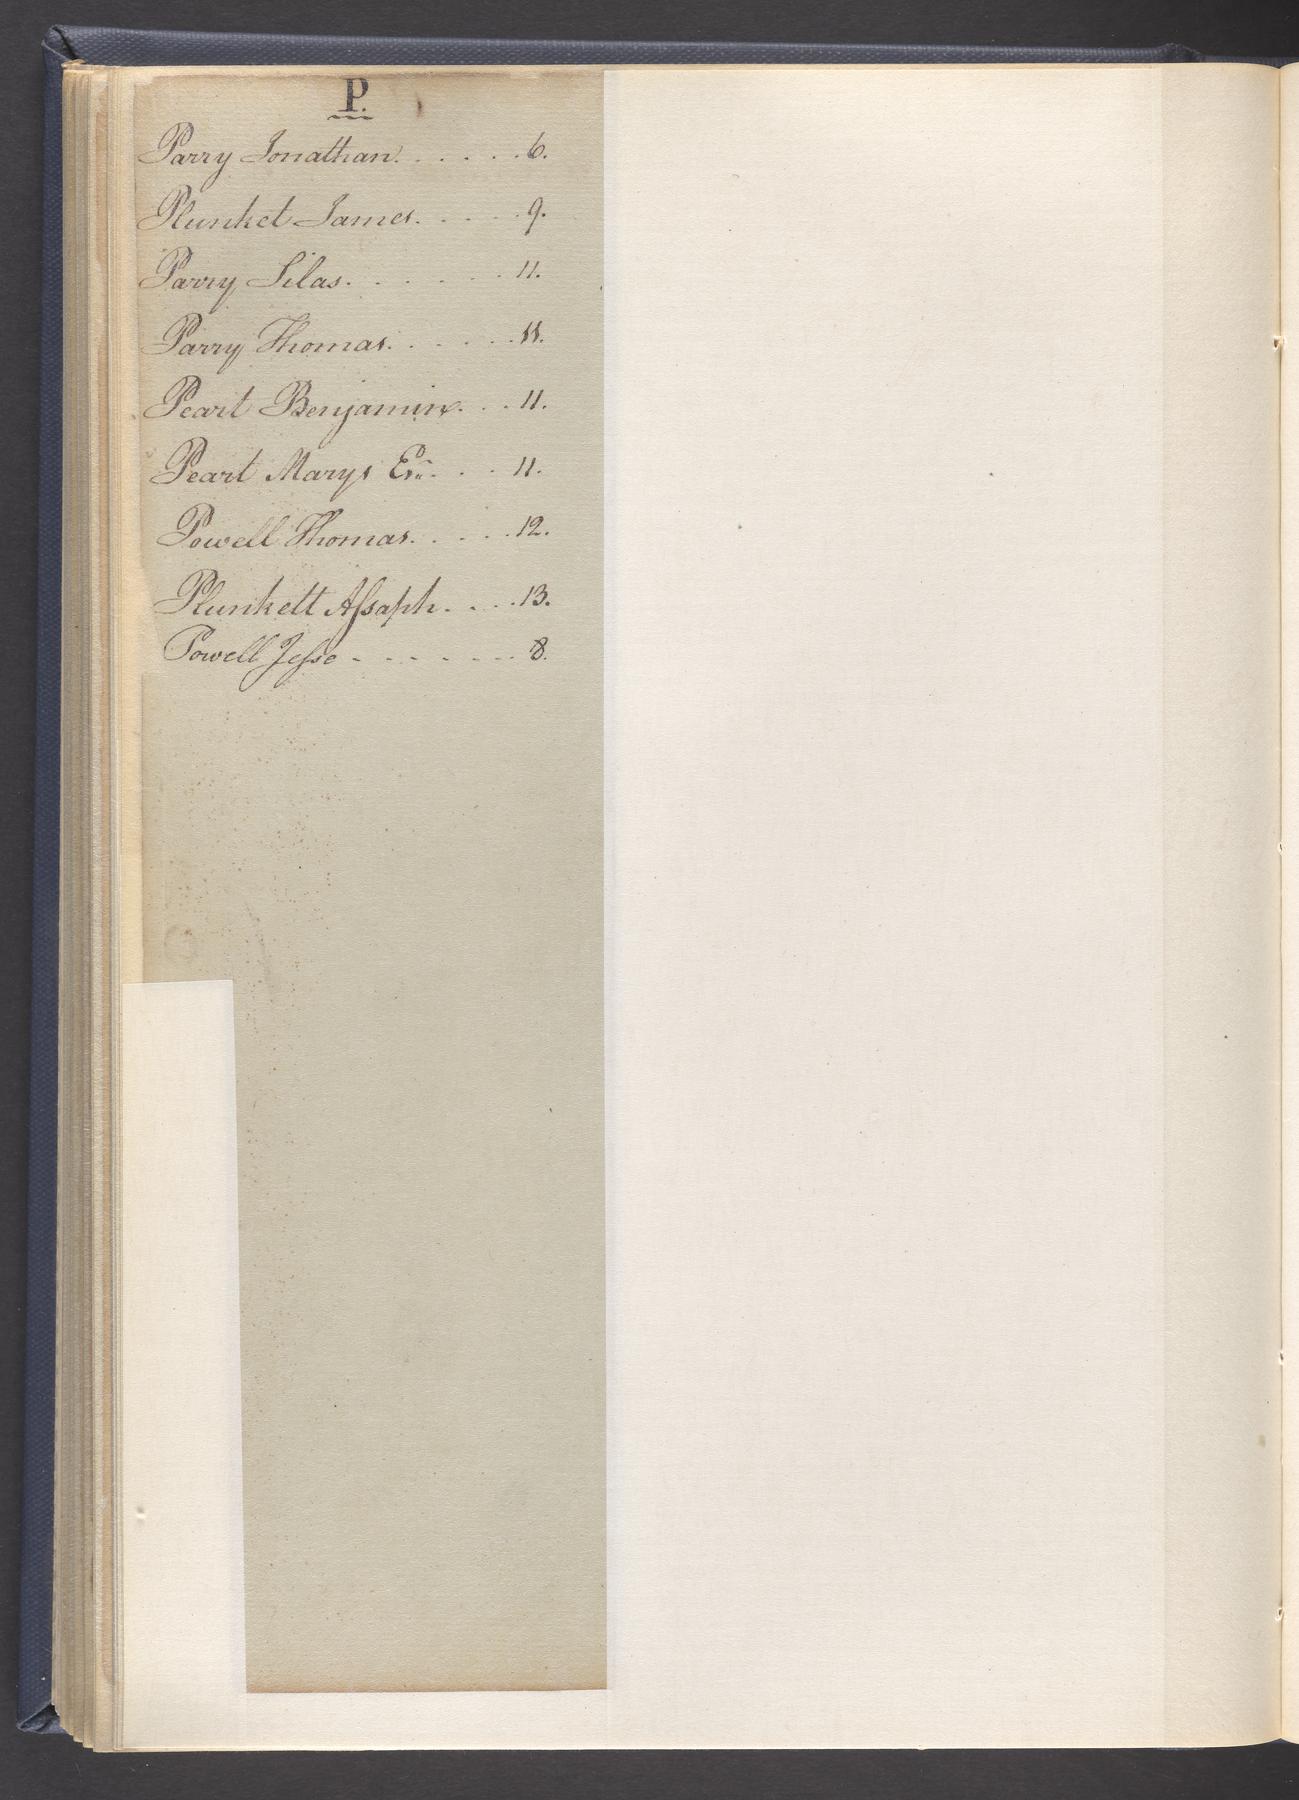 P.
Parry Jonathan. . . . . . 6.
Plunket James. . . . . 9.
Parry Silas. . . . . . 11.
Parry Thomas. . . . . . 11.
Peart Benjamin. . . 11.
Peart Marys . . 11.
Powell Thomas. . . . . 12.
Plunkett Aſsaph. . . . 13.
Powell Jeſse - - - - - - - 8.